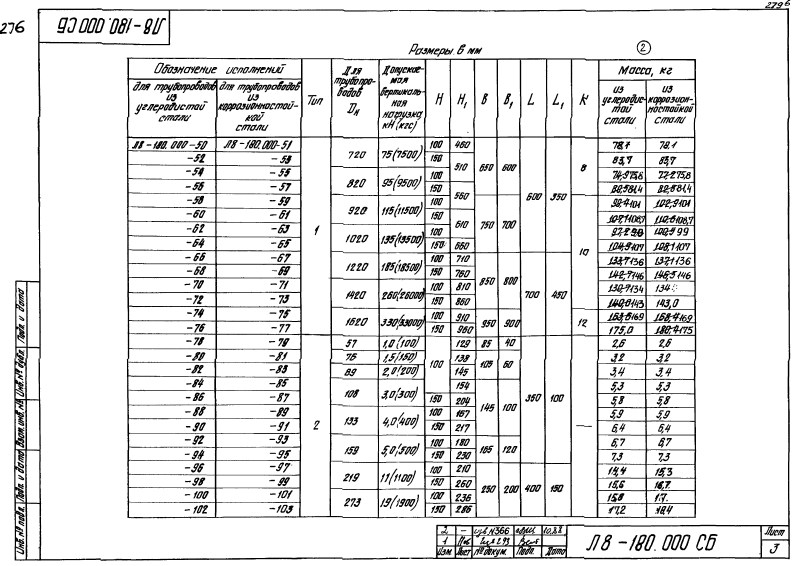 279 б
276
Л8-180.000 СБ
Размеры в мм
2
Обозначение исполнений
для трубопроводов из углеродистой стали
для трубопроводов из коррозионностойкой стали
Тип
Для трубопроводов Dн
Допускаемая вертикальная нагрузка кН (кгс)
H
H1
B
B1
L
L1
K
Масса, кг
из углеродистой стали
из коррозионностойкой стали
Л8-180.000-50 Л8-180.000-51 1 720 75(7500) 100 460 650 600 600 350 8 78,1 78,1
-52 -53 150 510 83,7 83,7
-54 -55 820 95(9500) 100 75,8 75,8
-56 -57 150 560 81,4 81,4
-58 -59 920 115(11500) 100 750 700 10 101 101
-60 -61 150 610 108,7 108,7
-62 -63 1020 135(13500) 100 99
-64 -65 150 660 107 107
-66 -67 1220 185(18500) 100 710 850 800 700 450 136 136
-68 -69 150 760 146 146
-70 -71 1420 260(26000) 100 810 134 134
-72 -73 150 860 143 143,0
-74 -75 1620 330(33000) 100 910 950 900 12 169 169
-76 -77 150 960 175,0 175
-78 -79 2 57 1,0(100) 100 129 85 40 350 100 — 2,6 2,6
-80 -81 76 1,5(150) 138 105 60 3,2 3,2
-82 -83 89 2,0(200) 145 3,4 3,4
-84 -85 108 3,0(300) 154 145 100 5,3 5,3
-86 -87 150 204 5,8 5,8
-88 -89 133 4,0(400) 100 167 5,9 5,9
-90 -91 150 217 6,4 6,4
-92 -93 159 5,0(500) 100 180 165 120 6,7 6,7
-94 -95 150 230 7,3 7,3
-96 -97 219 11(1100) 100 210 250 200 400 150 15,4 15,3
-98 -99 150 260 15,6 16,7
-100 -101 273 19(1900) 100 236 15,8
-102 -103 150 286 17,2 18,4
2 – 366 10.88
1
Изм Лист № докум. Подп. Дата
Л8-180.000 СБ
Лист
3
Инв № подл. Подп. и дата Взам. инв. № Инв № дубл. Подп. и дата